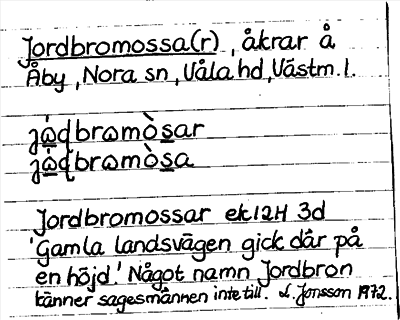 Jordbromossa(r), åkrar å
Åby, Nora sn, Våla hd, Västm. l.
jo̲ɖbrωmòs̲ar
jo̲ɖbrωmòs̲a
Jordbromossar ek 12H 3d
'Gamla landsvägen gick där på
en höjd.' Något namn Jordbron
känner sagesmannen inte till. L. Jonsson 1972.